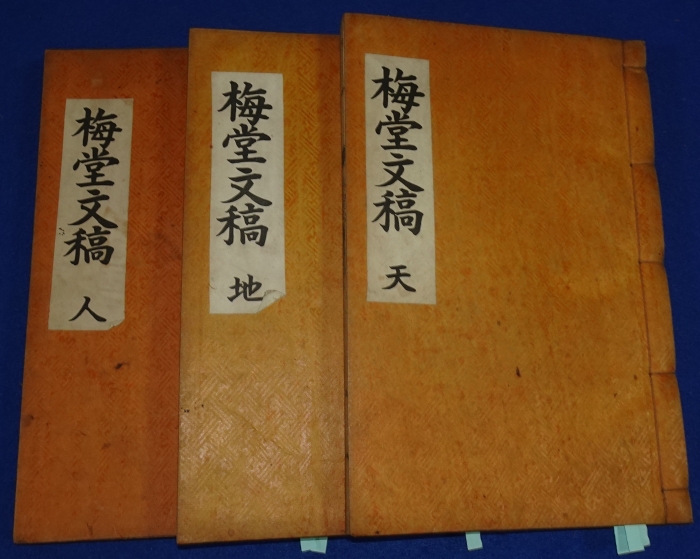 梅堂文稿 天
梅堂文稿 地
梅堂文稿 人